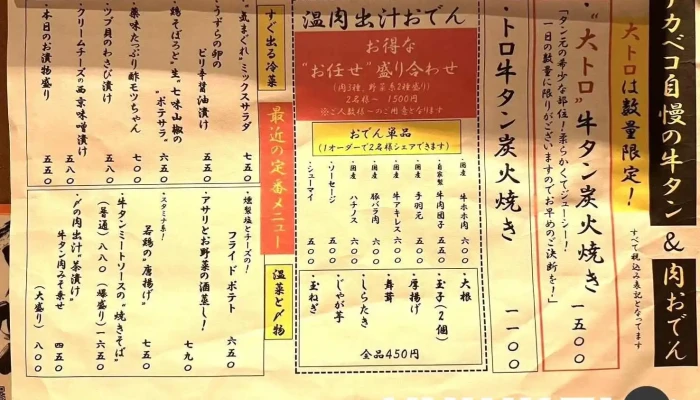 アカベコ自慢の牛タン & 肉おでん
すべて税込み表記となってます
大トロは数量限定！
・“大トロ”牛タン炭火焼き 一五〇〇
「タン元の希少な部位！柔らかくてジューシー！
一日の数量に限りがございますのでお早めのご決断を！」
・トロ牛タン炭火焼き 一一〇〇
温肉出汁おでん
お得な
“お任せ”盛り合わせ
(肉3種、野菜系2種盛り)
2名様〜 1500円
※ご人数様〜のご用意となります
おでん単品
(1オーダーで2名様シェアできます)
・国産 牛ホホ肉 六〇〇
・自家製 牛肉団子 五五〇
・国産 手羽元 五〇〇
・国産 牛アキレス 六〇〇
・国産 豚バラ肉 六〇〇
・国産 ハチノス 六〇〇
・ソーセージ 五〇〇
・シューマイ 五〇〇
・大根
・玉子(2個)
・厚揚げ
・舞茸
・しらたき
・じゃが芋
・玉ねぎ
全品450円
最近の定番メニュー
すぐ出る冷菜
・気まぐれ“ミックスサラダ 七五〇
・うずらの卵の
ピリ辛醤油漬け 五五〇
・鶏そぼろと“生”七味山椒の
“ポテサラ” 六五〇
・薬味たっぷり酢モツちゃん 七〇〇
・ツブ貝のわさび漬け 五五〇
・クリームチーズの西京味噌漬け 五八〇
・本日のお漬物盛り 五五〇
温菜と〆物
・燻製塩とチーズの！
フライドポテト 六五〇
・アサリとお野菜の酒蒸し！ 七九〇
・スタミナ系！
若鶏の“唐揚げ” 七五〇
・牛タンミートソースの“焼きそば”
(普通)八八〇 (爆盛り)一六五〇
・〆の肉出汁“茶漬け”
牛タン肉みそ乗せ 四五〇
(大盛り) 八〇〇